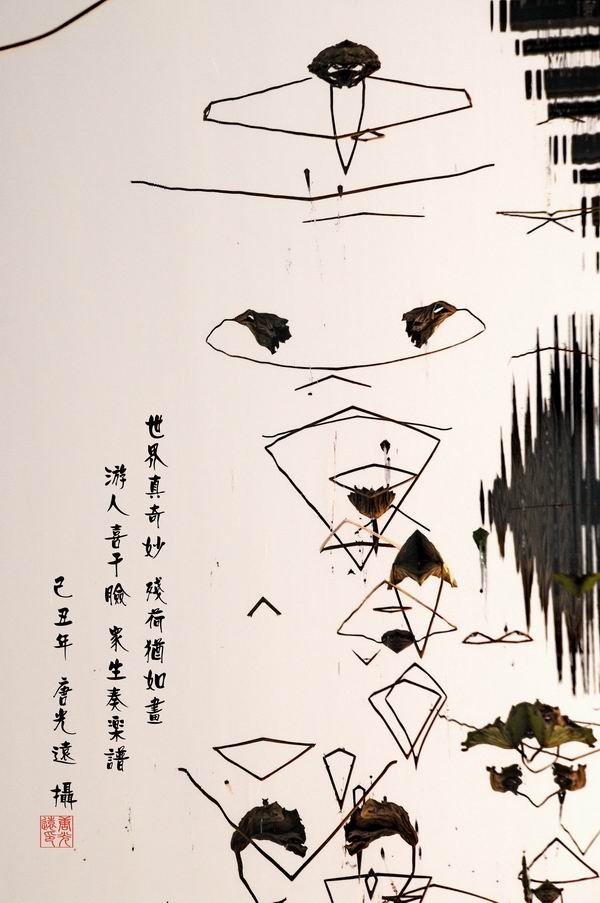 世界真奇妙 殘荷猶如畫
游人喜千臉 衆生奏樂譜
己丑年 唐光遠 攝
唐光遠印